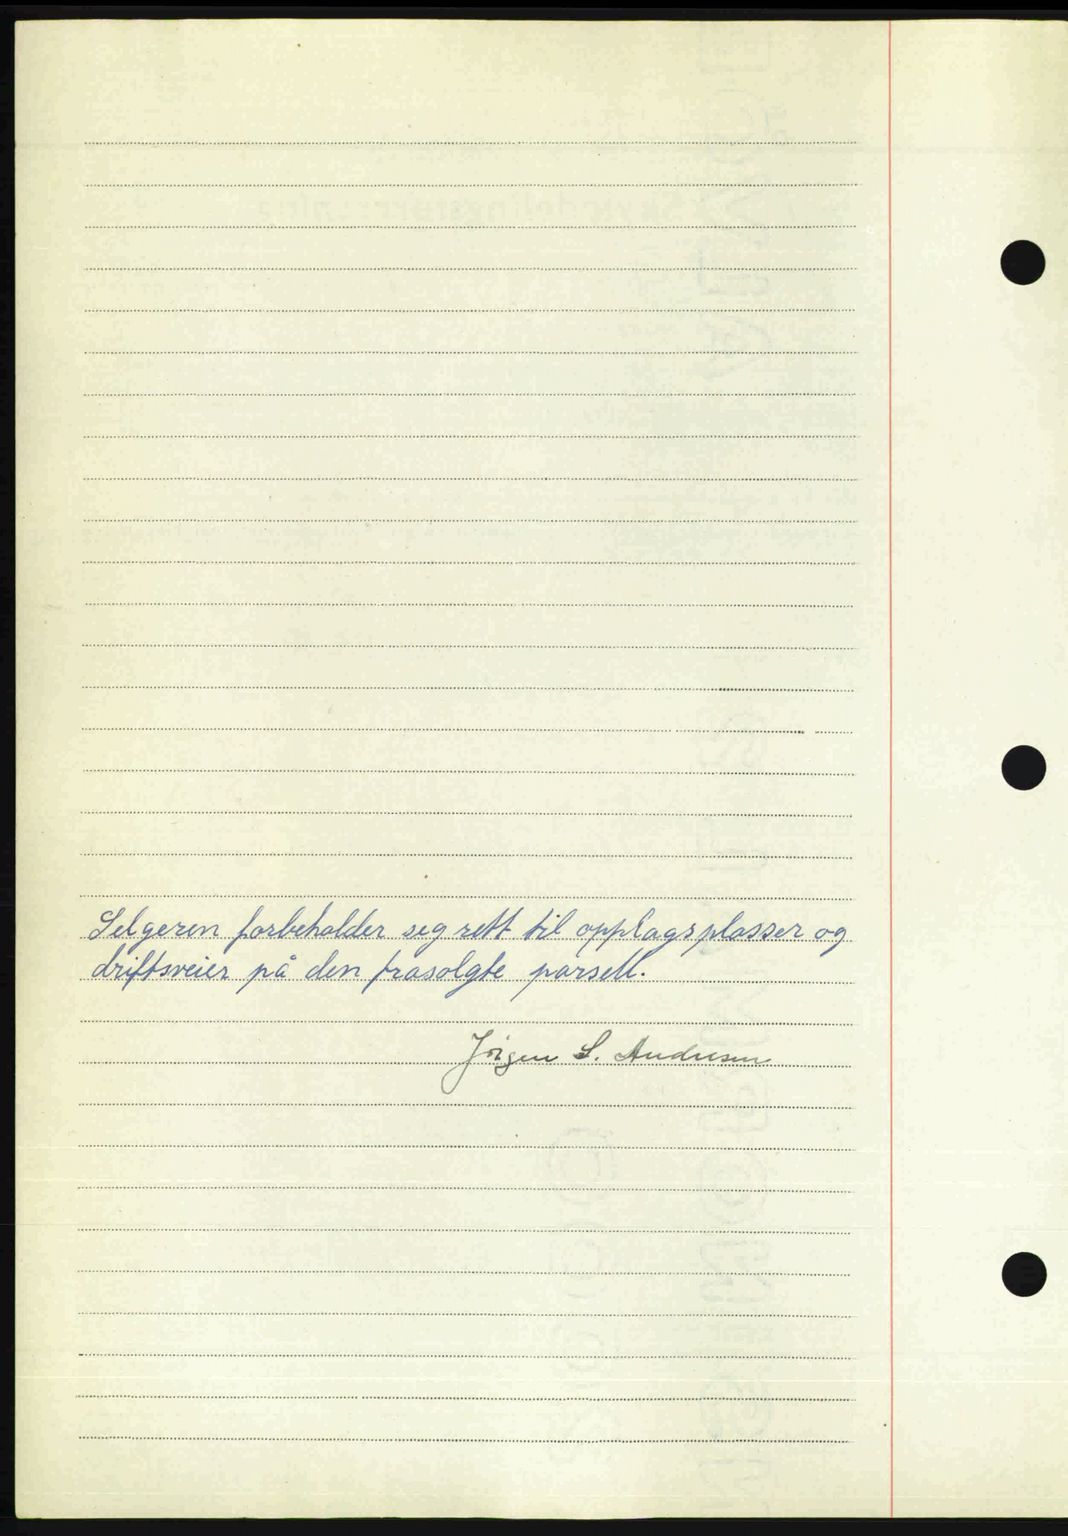 Selgeren forbeholder seg rett til opplagsplasser og
driftsveier på den frasolgte parsell.
Jörgen S. Andresen